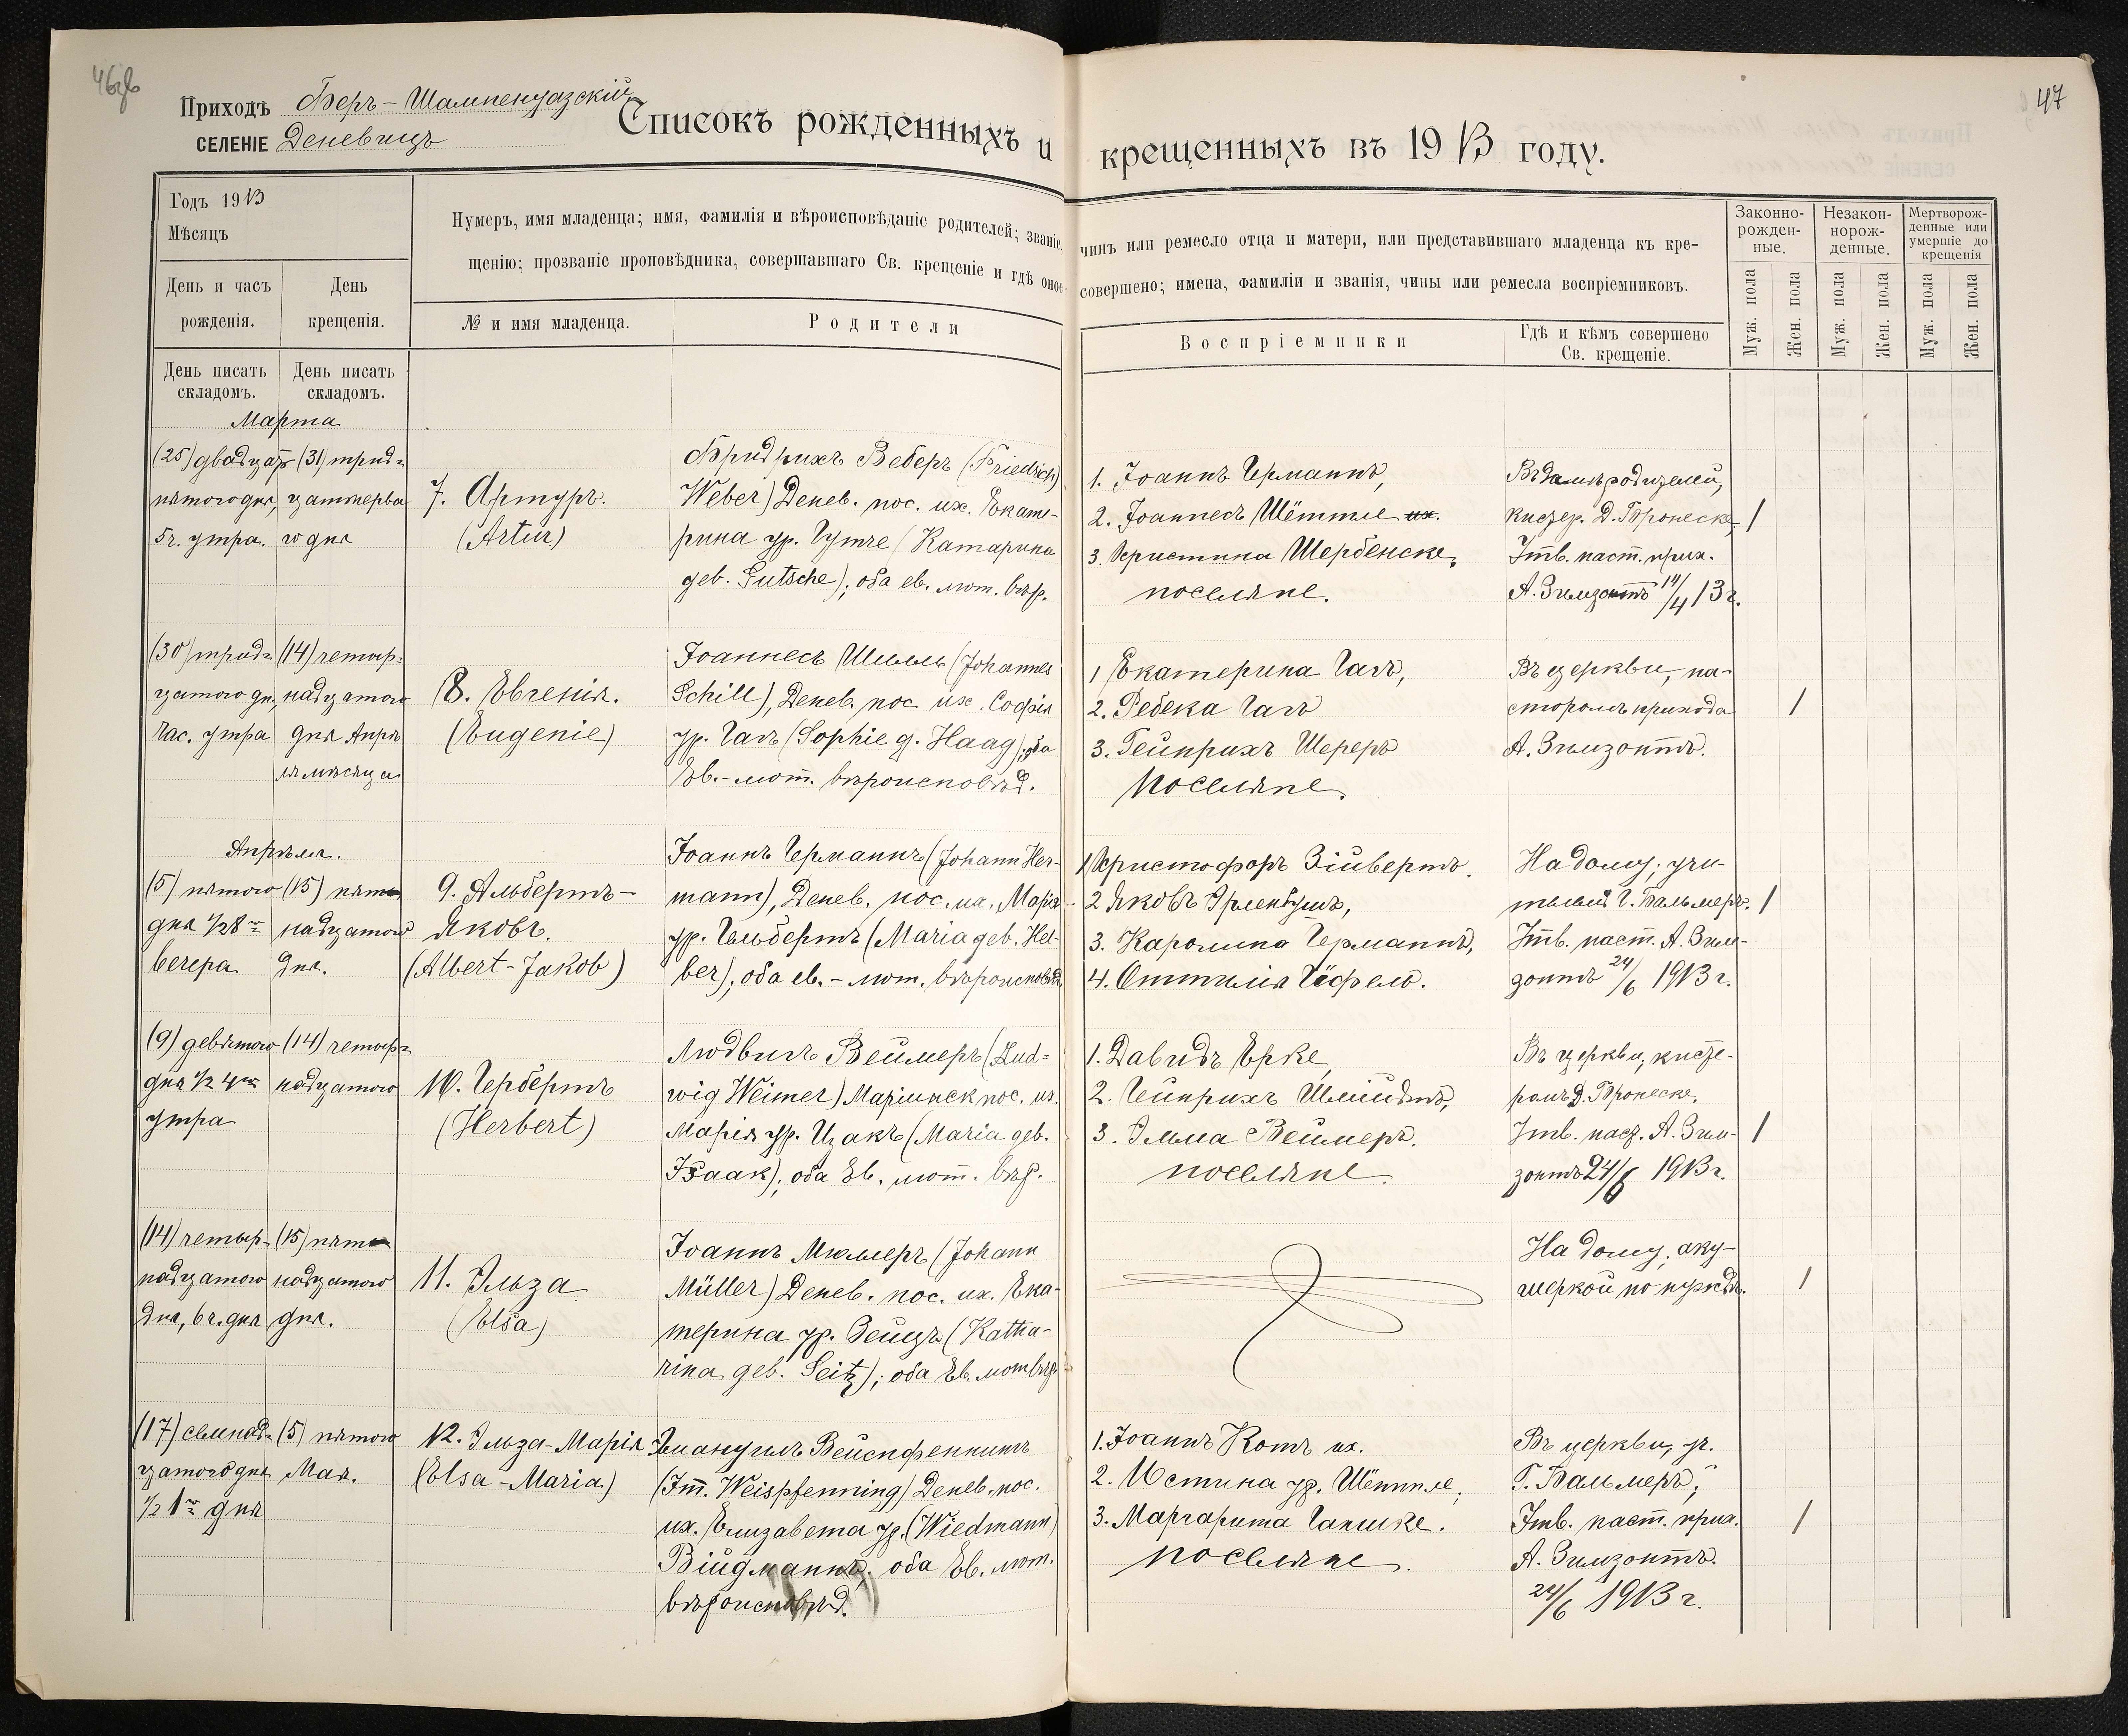 46об
47
Приходъ Беръ-Шампенуазскій
СЕЛЕНІЕ Деневицъ
Списокъ рожденныхъ и крещенныхъ въ 1913 году.
Годъ 1913
Мѣсяцъ
День и часъ рожденія.
День крещенія.
День писать складомъ.
День писать складомъ.
Нумеръ, имя младенца; имя, фамилія и вѣроисповѣданіе родителей; званіе, чинъ или ремесло отца и матери, или представившаго младенца къ кре-
щенію; прозваніе проповѣдника, совершавшаго Св. крещеніе и гдѣ оное совершено; имена, фамиліи и званія, чины или ремесла воспріемниковъ.
№ и имя младенца.
Родители
Воспріемники
Гдѣ и кѣмъ совершено
Св. крещеніе.
Законно-
рожден-
ные.
Незакон-
норож-
денные.
Мертворож-
денные или
умершіе до
крещенія
Муж. пола
Жен. пола
Муж. пола
Жен. пола
Муж. пола
Жен. пола
Марта
(25) двадцать
пятого дня,
5 ч. утра.
(31) трид-
цатьперва
го дня
7. Артуръ.
(Artur)
Фридрихъ Веберъ (Friedrich
Weber) Денев. пос. их. Екате-
рина ур. Гутче (Катарина
geb. Gutsche); оба ев. лют. вѣр.
1. Іоаннъ Германнъ,
2. Іоаннесъ Шёттле их.
3. Христина Шербенске,
поселяне.
Въ домѣ родителей,
кистер. Д. Бронеске,
Утв. паст. прих.
А. Зильзонтъ 14/4 13 г.
/
(30) трид-
цатого дн.,
час. утра
(14) четыр-
надцатого
дня Апрѣ
ля мѣсяца
8. Евгенія.
(Eugenie)
Іоаннесъ Шилль (Johannes
Schill), Денев. пос. их. Софія
ур. Гагъ (Sophie g. Haag); оба
Ев.-лют. вѣроисповѣд.
1 Екатерина Гагъ,
2. Ребека Гагъ
3. Гейнрихъ Шереръ
Поселяне.
Въ церкви, па-
сторомъ прихода
А. Зильзонтъ.
/
Апрѣля.
(5) пятого
дня 1/2 8 ч.
вечера
(15) пят
надцатого
дня.
9. Альбертъ-
Яковъ.
(Albert-Jakob)
Іоаннъ Германнъ (Johann Her-
mann), Денев. пос. их. Марія
ур. Гельбертъ (Maria geb. Hel-
ber); оба ев.-лют. вѣроисповѣд.
1 Христофоръ Зійвертъ.
2 Яковъ Эрленбушъ,
3. Каролина Германнъ,
4. Оттилія Гёфелъ.
На дому; учи-
телемъ Г. Бальмеръ.
Утв. паст. А. Зиль-
зонтъ 24/6 1913 г.
/
(9) девятого
дня 1/2 4 ч.
утра
(14) четыр-
надцатого
10. Гербертъ
(Herbert)
Людвигъ Веймеръ (Lud-
wig Weimer) Маріинск пос. их.
Марія ур. Изакъ (Maria geb.
Isaak); оба Ев. лют. вѣр.
1. Давидъ Ерке,
2. Гейнрихъ Шмидтъ,
3. Эльма Веймеръ.
поселяне.
Въ церкви, кисте-
ромъ Д. Бронеске,
Утв. паст. А. Зиль-
зонтъ 24/6 1913 г.
/
(14) четыр-
надцатого
дня, 6 ч. дня
(15) пят
надцатого
дня.
11. Эльза
(Elsa)
Іоаннъ Мюллеръ (Johann
Müller) Денев. пос. их. Ека-
терина ур. Зейцъ (Katha-
rina geb. Seitz); оба Ев. лют вѣр.
На дому, аку-
шеркой по нуждѣ.
/
(17) семнад-
цатого дня
1/2 1 ч. дня
(5) пятого
Мая.
12. Эльза-Марія
(Elsa-Maria)
Эмануилъ Вейспфеннингъ
(Im. Weispfenning) Денев. пос.
их. Елизавета ур. (Wiedmann)
Війдманнъ; оба Ев. лют.
вѣроисповѣд.
1. Іоаннъ Котъ их.
2. Юстина ур. Шёттле,
3. Маргарита Ганшке.
поселяне.
Въ церкви, уч.
Г. Бальмеръ;
Утв. паст. прих.
А. Зильзонтъ.
24/6 1913 г.
/